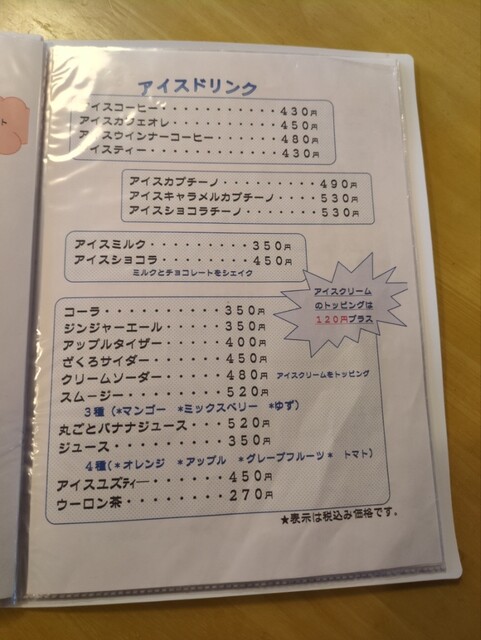 アイスドリンク
アイスコーヒー・・・・・・・・・・・430円
アイスカフェオレ・・・・・・・・・・450円
アイスウインナーコーヒー・・・・・・480円
アイスティー・・・・・・・・・・・・430円
アイスカプチーノ・・・・・・・・・490円
アイスキャラメルカプチーノ・・・・530円
アイスショコラチーノ・・・・・・・530円
アイスミルク・・・・・・・・・350円
アイスショコラ・・・・・・・・450円
ミルクとチョコレートをシェイク
アイスクリーム
のトッピングは
120円プラス
コーラ・・・・・・・・・・350円
ジンジャーエール・・・・・350円
アップルタイザー・・・・・400円
ざくろサイダー・・・・・・450円
クリームソーダー・・・・・480円 アイスクリームをトッピング
スムージー・・・・・・・・520円
3種(*マンゴー *ミックスベリー *ゆず)
丸ごとバナナジュース・・・520円
ジュース・・・・・・・・・350円
4種(*オレンジ *アップル *グレープフルーツ* トマト)
アイスユズティー・・・・・・450円
ウーロン茶・・・・・・・・270円
★表示は税込み価格です。
ト